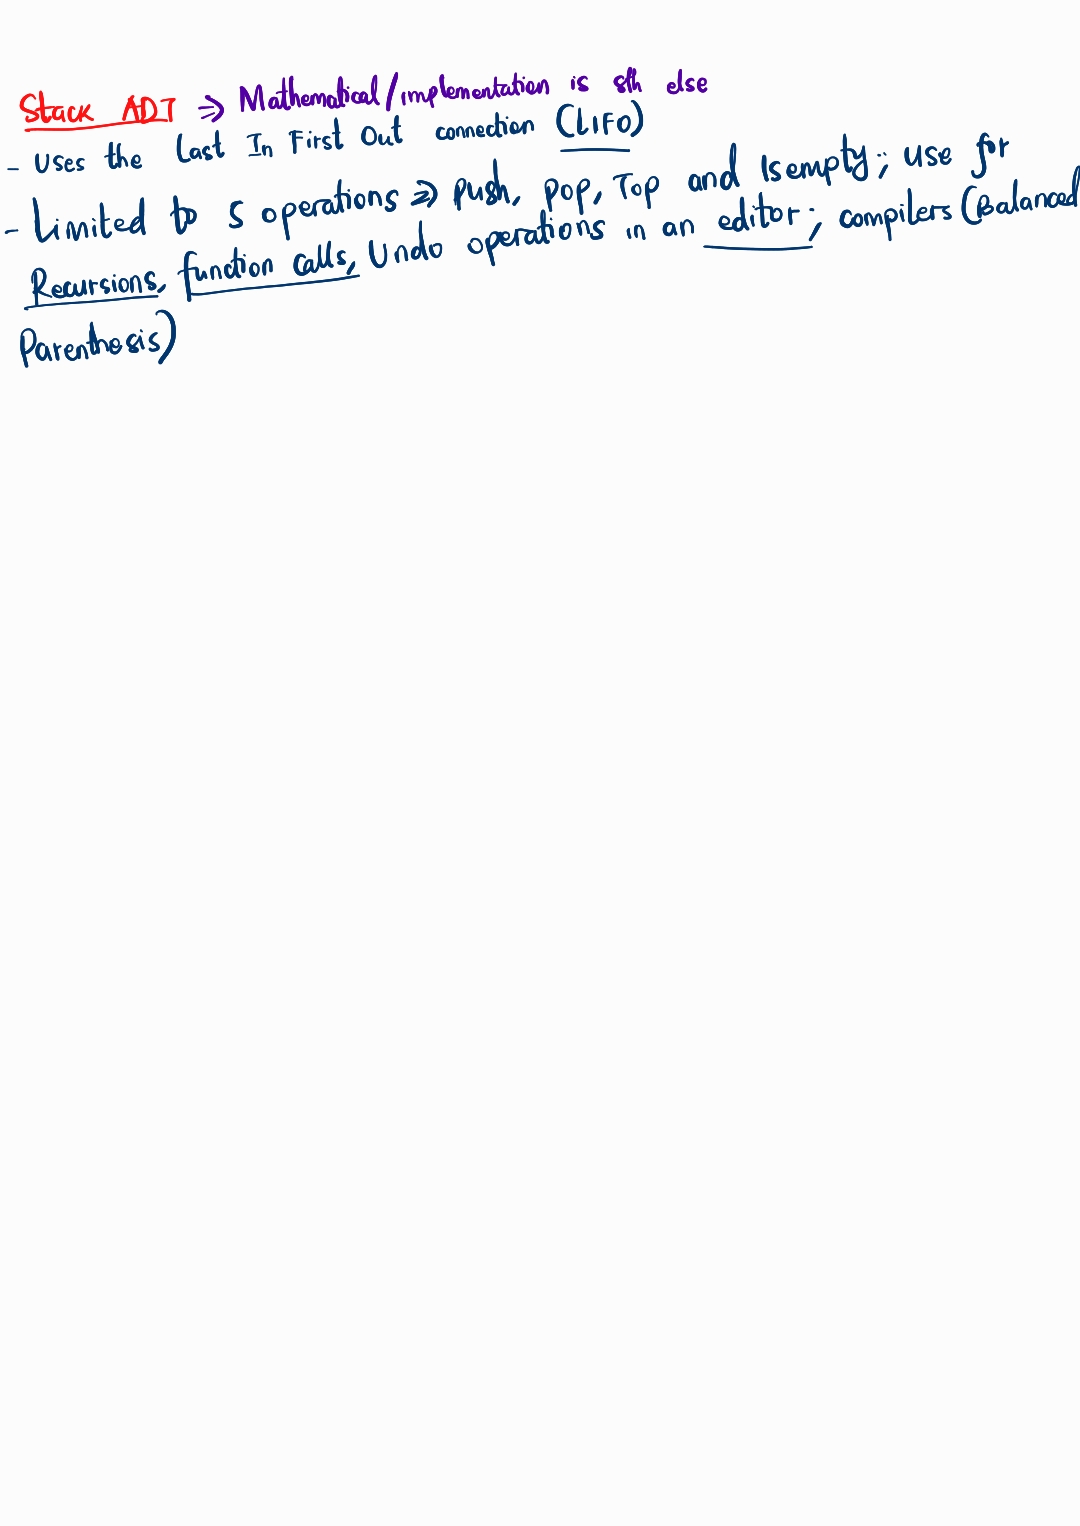 Stack ADT => Mathematical/implementation is sth else
- Uses the Last In First Out connection (LIFO)
- Limited to 5 operations => push, pop, Top and Isempty; use for
Recursions, function calls, Undo operations in an editor; compilers (Balanced
Parenthesis)